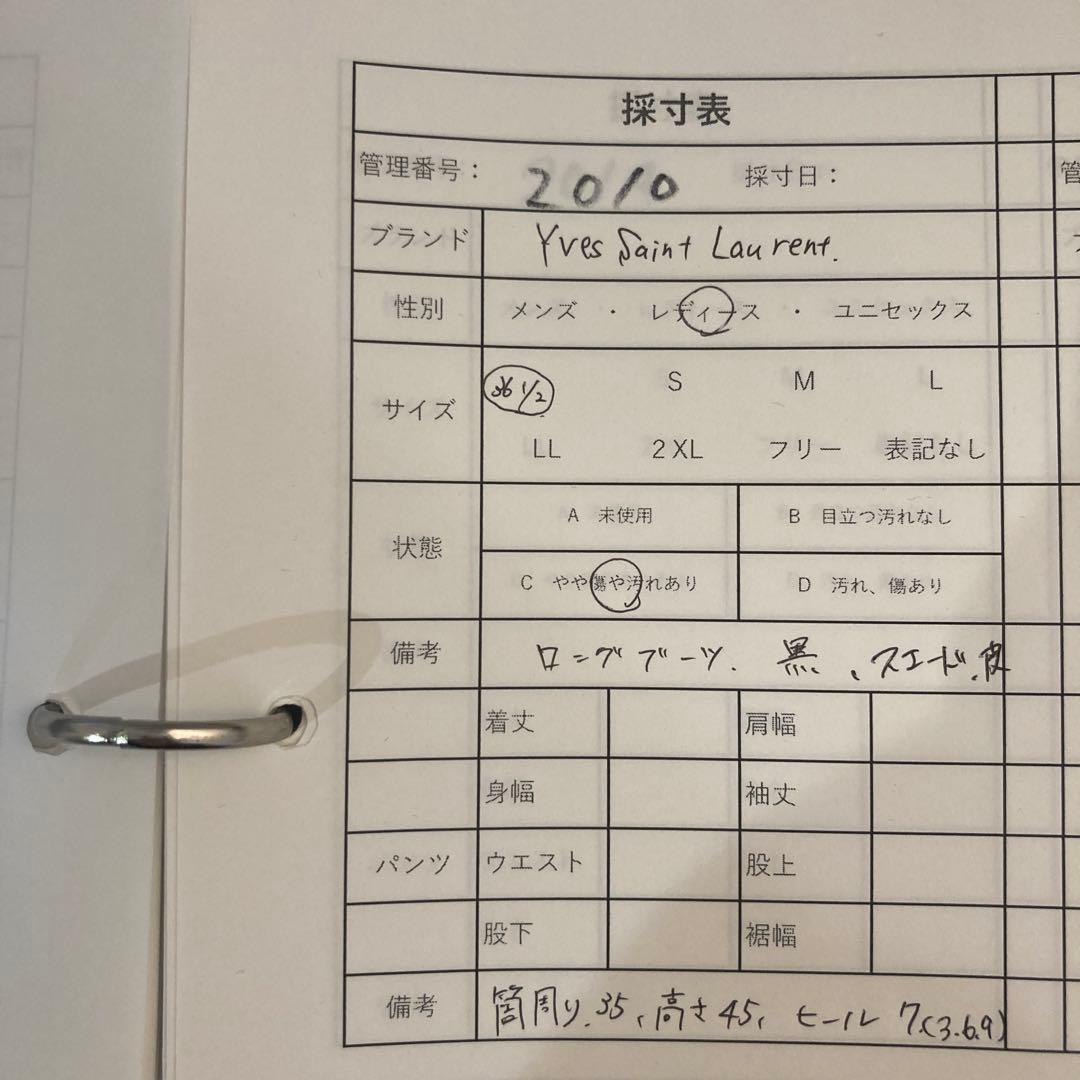 採寸表
管理番号： 2010 採寸日：
ブランド Yves Saint Laurent.
性別 メンズ ・ レディース ・ ユニセックス
サイズ 36 1/2 S M L
LL 2XL フリー 表記なし
状態 A 未使用 B 目立つ汚れなし
C やや傷や汚れあり D 汚れ、傷あり
備考 ロングブーツ. 黒、スエード、皮
着丈 肩幅
身幅 袖丈
パンツ ウエスト 股上
股下 裾幅
備考 筒周り.35、高さ45、ヒール 7.(3.6.9)